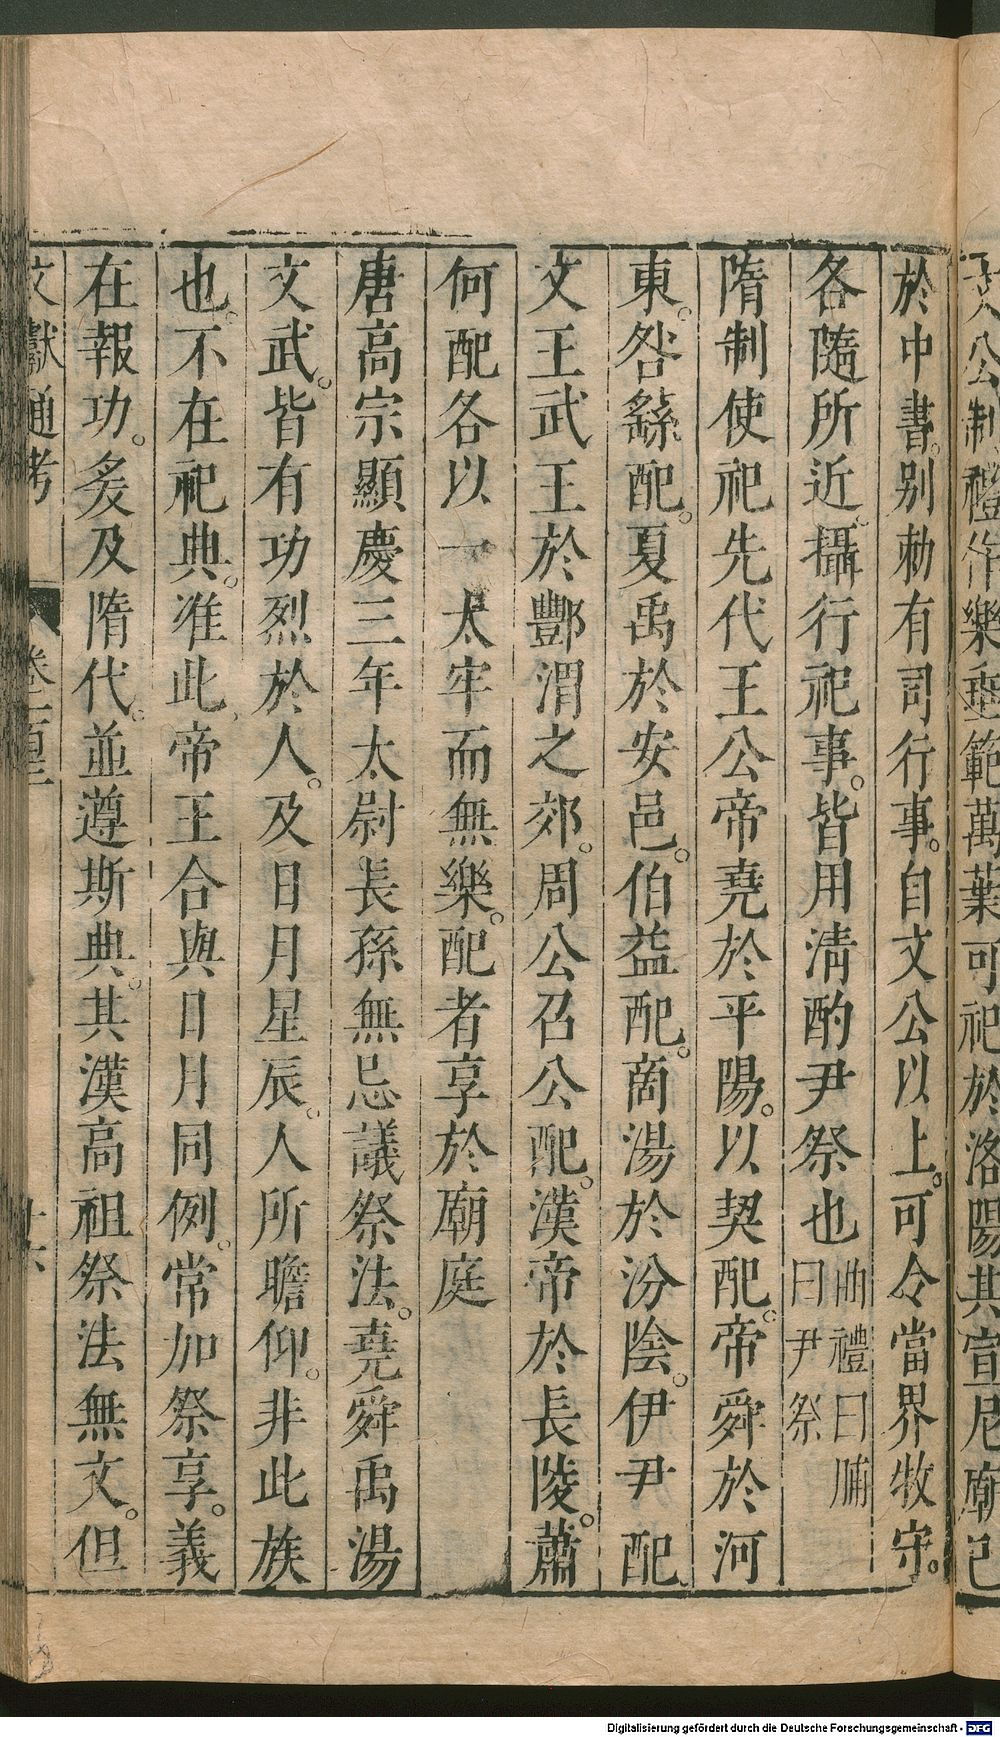 公制禮作樂垂範萬葉可祀於洛陽其宣尼廟已
於中書。别勅有司行事。自文公以上。可令當界牧守。
各隨所近。攝行祀事。皆用清酌尹祭也曲禮曰脯曰尹祭
隋制使祀先代王公帝堯於平陽。以契配。帝舜於河
東。咎繇配。夏禹於安邑。伯益配。商湯於汾陰。伊尹配
文王武王於酆渭之郊。周公召公配。漢帝於長陵。蕭
何配各以一太牢而無樂。配者享於廟庭
唐高宗顯慶三年太尉長孫無忌議祭法。堯舜禹湯
文武。皆有功烈於人。及日月星辰。人所瞻仰。非此族
也。不在祀典。准此、帝王合與日月同例。常加祭享。義
在報功。爰及隋代。並遵斯典。其漢高祖祭法無文。但
文獻通考 卷一百三 十六
Digitalisierung gefördert durch die Deutsche Forschungsgemeinschaft - DFG